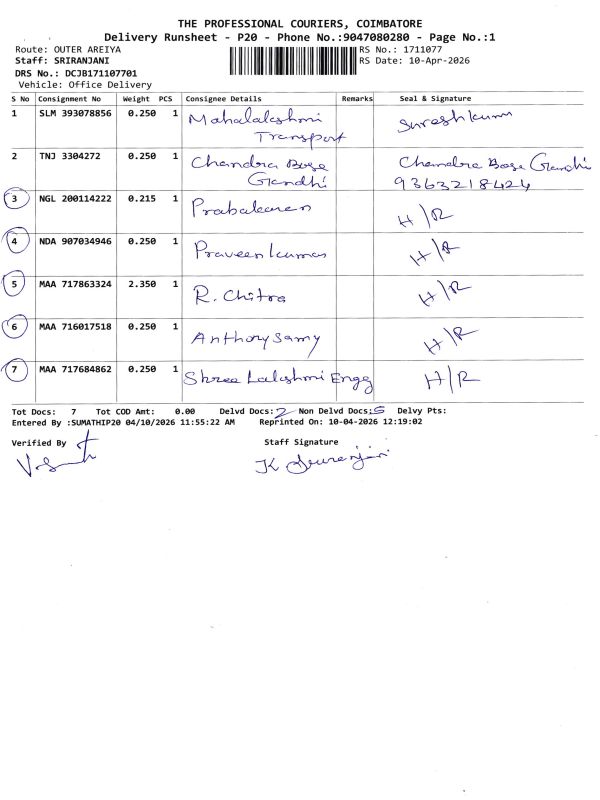 THE PROFESSIONAL COURIERS, COIMBATORE
Delivery Runsheet - P20 - Phone No.:9047080280 - Page No.:1
Route: OUTER AREIYA RS No.: 1711077
Staff: SRIRANJANI RS Date: 10-Apr-2026
DRS No.: DCJB171107701
Vehicle: Office Delivery
S No Consignment No Weight PCS Consignee Details Remarks Seal & Signature
1 SLM 393078856 0.250 1 Mahalakshmi Transport Sureshkumar
2 TNJ 3304272 0.250 1 Chandra Bose Gandhi Chandra Bose Gandhi 9363218424
3 NGL 200114222 0.215 1 Prabakaran H/R
4 NDA 907034946 0.250 1 Praveenkumar H/R
5 MAA 717863324 2.350 1 R. Chitra H/R
6 MAA 716017518 0.250 1 Anthonysamy H/R
7 MAA 717684862 0.250 1 Shree Lakshmi Engg H/R
Tot Docs: 7 Tot COD Amt: 0.00 Delvd Docs: 2 Non Delvd Docs: 5 Delvy Pts:
Entered By :SUMATHIP20 04/10/2026 11:55:22 AM Reprinted On: 10-04-2026 12:19:02
Verified By Staff Signature